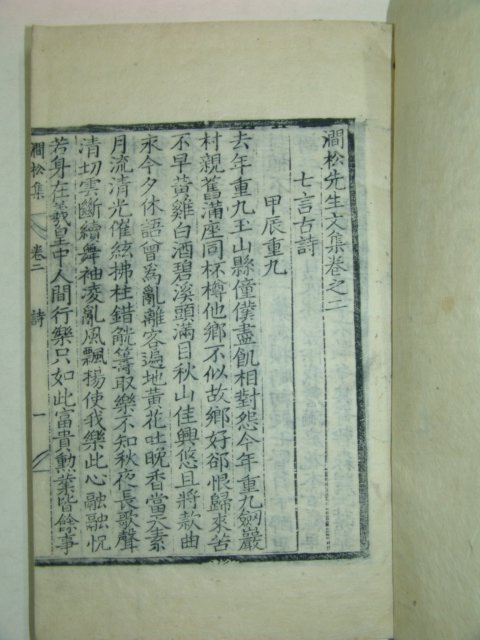 澗松先生文集卷之二
七言古詩
甲辰重九
去年重九玉山縣僮僕盡飢相對怨今年重九劒巖
村親舊滿座同杯樽他鄉不似故鄉好郤恨歸來苦
不早黃雞白酒碧溪頭滿目秋山佳興悠且將款曲
永今夕休語曾為亂離客遍地黃花吐晚香當天素
月流清光催絃拂柱錯觥籌取樂不知秋夜長歌聲
清切雲斷續舞袖凌亂風飄楊使我樂此心融融怳
若身在羲皇中人間行樂只如此富貴勳業皆餘事
澗松集 卷二 詩 一